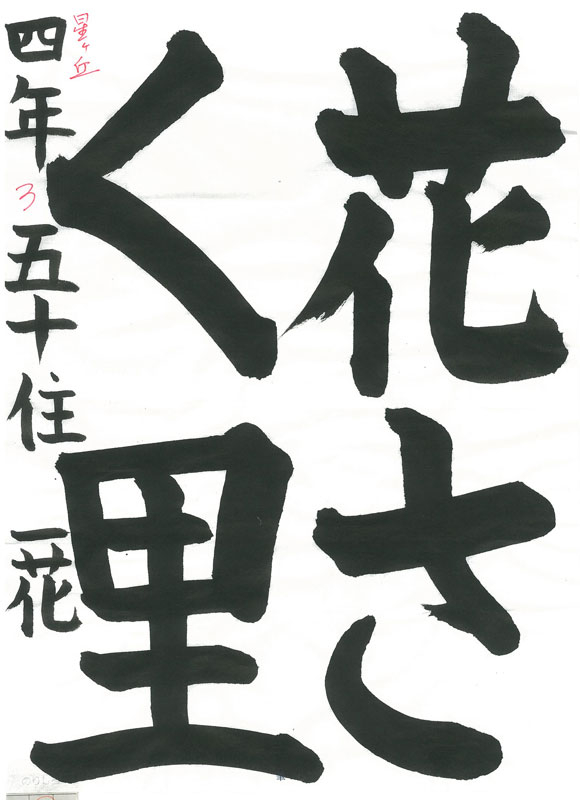 花さ
く里
星ヶ丘
四年 3 五十住 一花